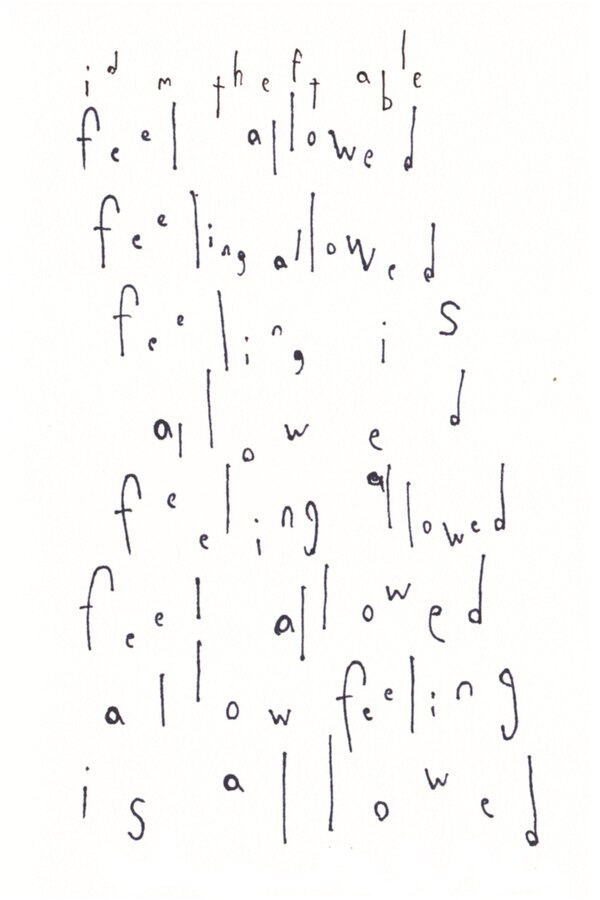 id m theft able
feel allowed
feeling allowed
feeling is
allowed
feeling allowed
feel allowed
allow feeling
is allowed